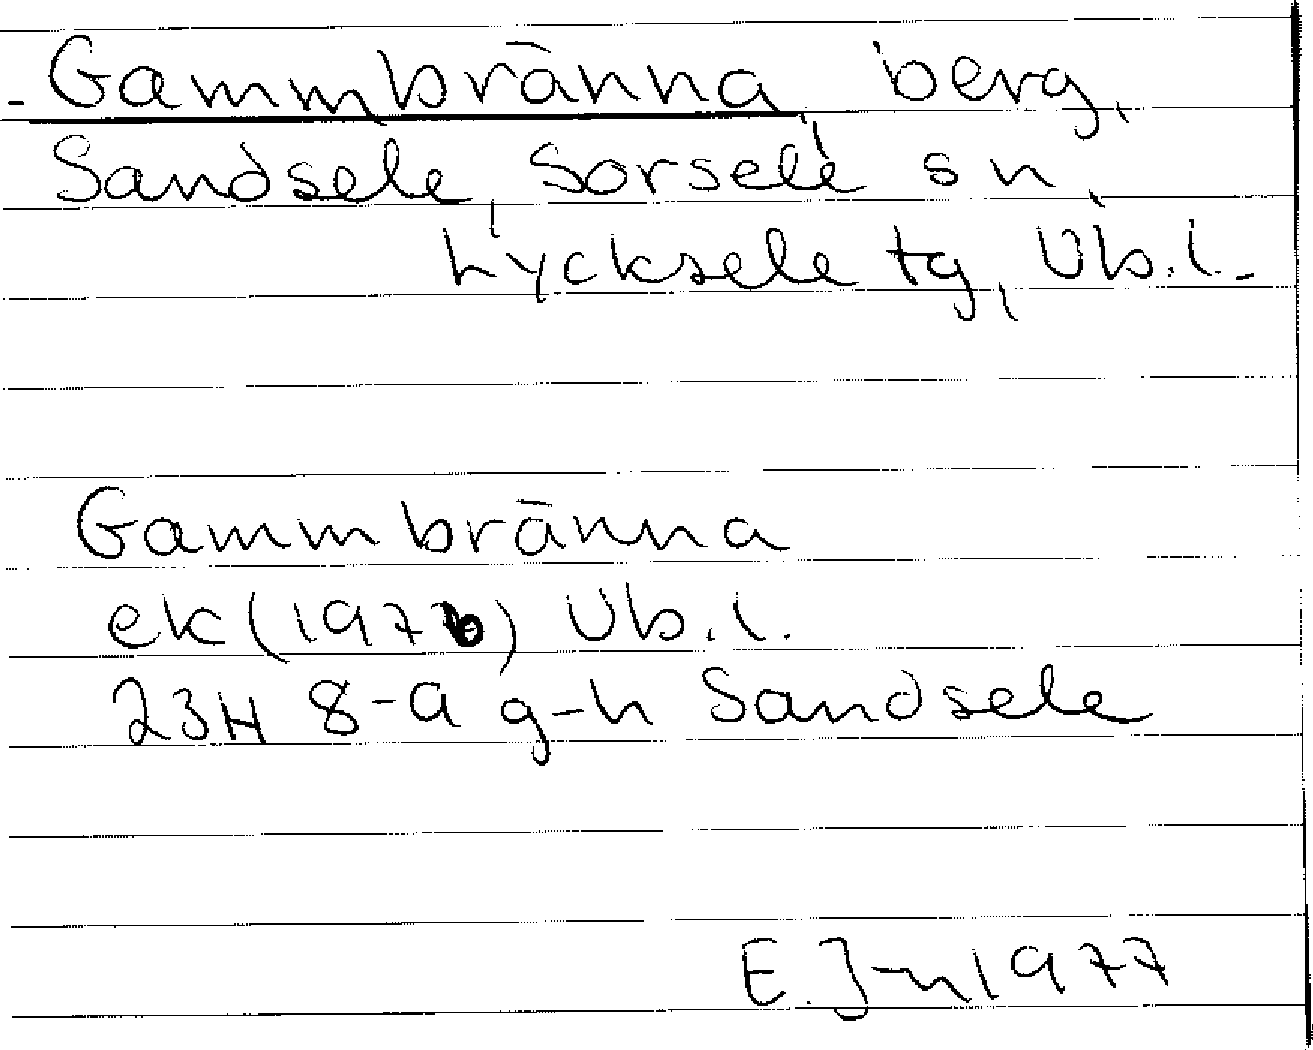 Gammbränna berg,
Sandsele, Sorsele sn,
Lycksele tg, Vb.l.
Gammbränna
ek (1976) Vb.l.
23H 8-9 g-h Sandsele
E.J-n 1977